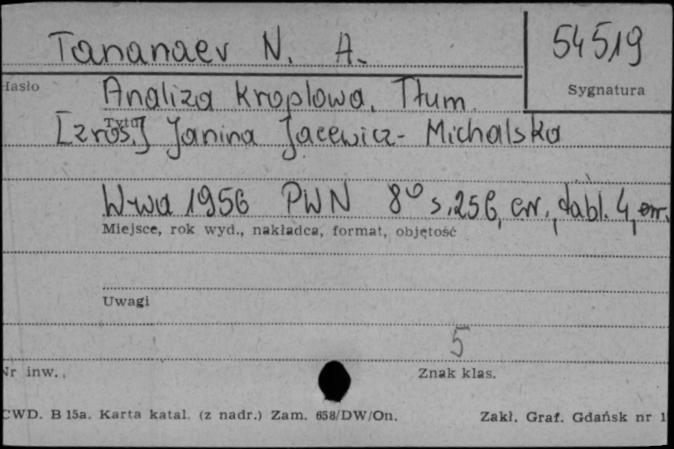 Tananaev N. A.
54519
Hasło
Sygnatura
Analiza kroplowa. Tłum.
Tytuł
[z ros.] Janina Jacewicz-Michalska
W-wa 1956 PWN 8° s. 256, err., tabl. 4, err.
Miejsce, rok wyd., nakładca, format, objętość
Uwagi
5
Nr inw.
Znak klas.
CWD. B 15a. Karta katal. (z nadr.) Zam. 658/DW/On.
Zakł. Graf. Gdańsk nr 1